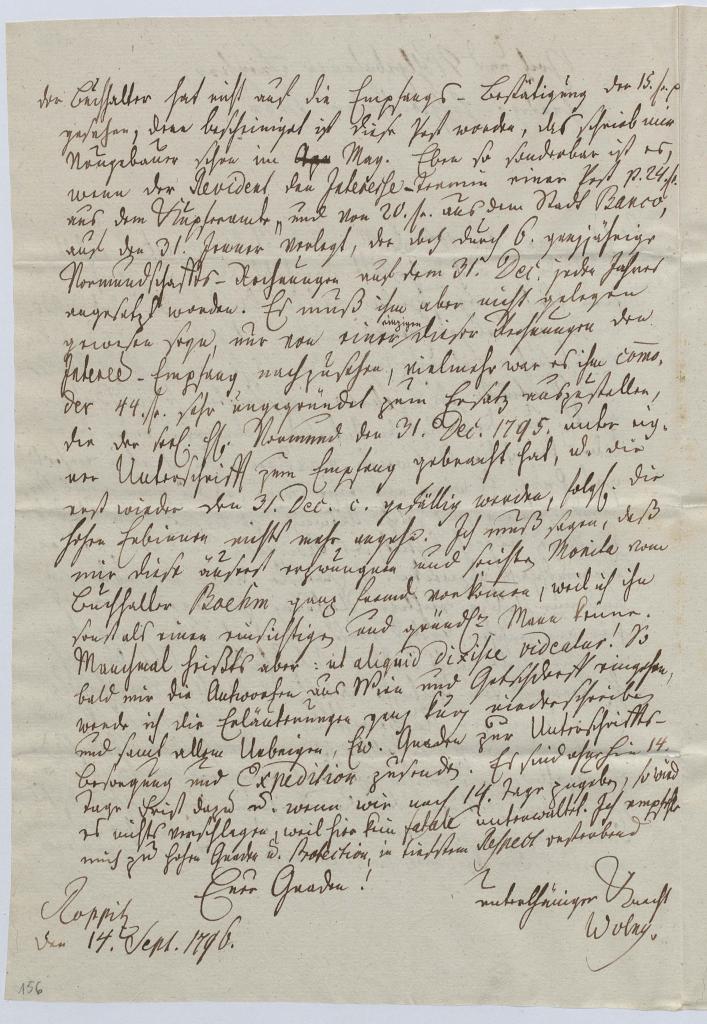 der Buchhalter hat nicht auf die Empfangs-Bestätigung der 15. fr. p
gesehen, denn bescheiniget ist diese Post worden, das schrieb mir
Neugebauer schon im May. Eben so sonderbar ist es,
wenn der Revident den Interesse-Termin einer Post p. 24 fr.
aus dem Kupferamte, und von 20. fr. aus dem Stadt Banco,
auf den 31. Jenner verlegt, der doch durch 6. ganzjährige
Vormundschafts-Rechnungen auf dem 31. Dec. jeden Jahres
angesetzt worden. Es muß ihm aber nicht gelegen
gewesen seyn, nur von einer einzigen dieser Rechnungen den
Interee-Empfang nachzusehen, vielmehr war es ihm commo-
der 44. fr. sehr ungegründet zum Ersatz auszustellen,
die der seel. H. Vormund den 31. Dec. 1795. unter eig-
ner Unterschrift zum Empfang gebracht hat, u. die
erst wieder den 31. Dec. c. gefällig werden, folgl. die
hohen Erbinnen nichts mehr angehe. Ich muß sagen, daß
mir diese äuserst erzwungnen und seichten Monita vom
Buchhalter Boehm ganz fremd vorkommen, weil ich ihn
sonst als einen einsichtigen und gründl. Mann kenne.
Manchmal heißts aber: ut aliquid dixisse videatur! So
bald mir die Antworten aus Wien und Gotschdorf eingehen,
werde ich die Erläuterungen ganz kurz niederschreiben
und samt allem Uebrigen, Ew. Gnaden zur Unterschrifts-
besorgung und Expedition zusenden. Es sind ohnehin 14.
Tage Frist dazu u. wenn wir noch 14. Tage zugeben, so wird
es nichts verschlagen, weil hier kein fatale unterwaltet. Ich empfehle
mich zu hohen Gnaden u. Protection, in tiefstem Respect ersterbend
Euer Gnaden!
unterthäniger Knecht
Roppitz
Wolny.
den 14. Sept. 1796.
156